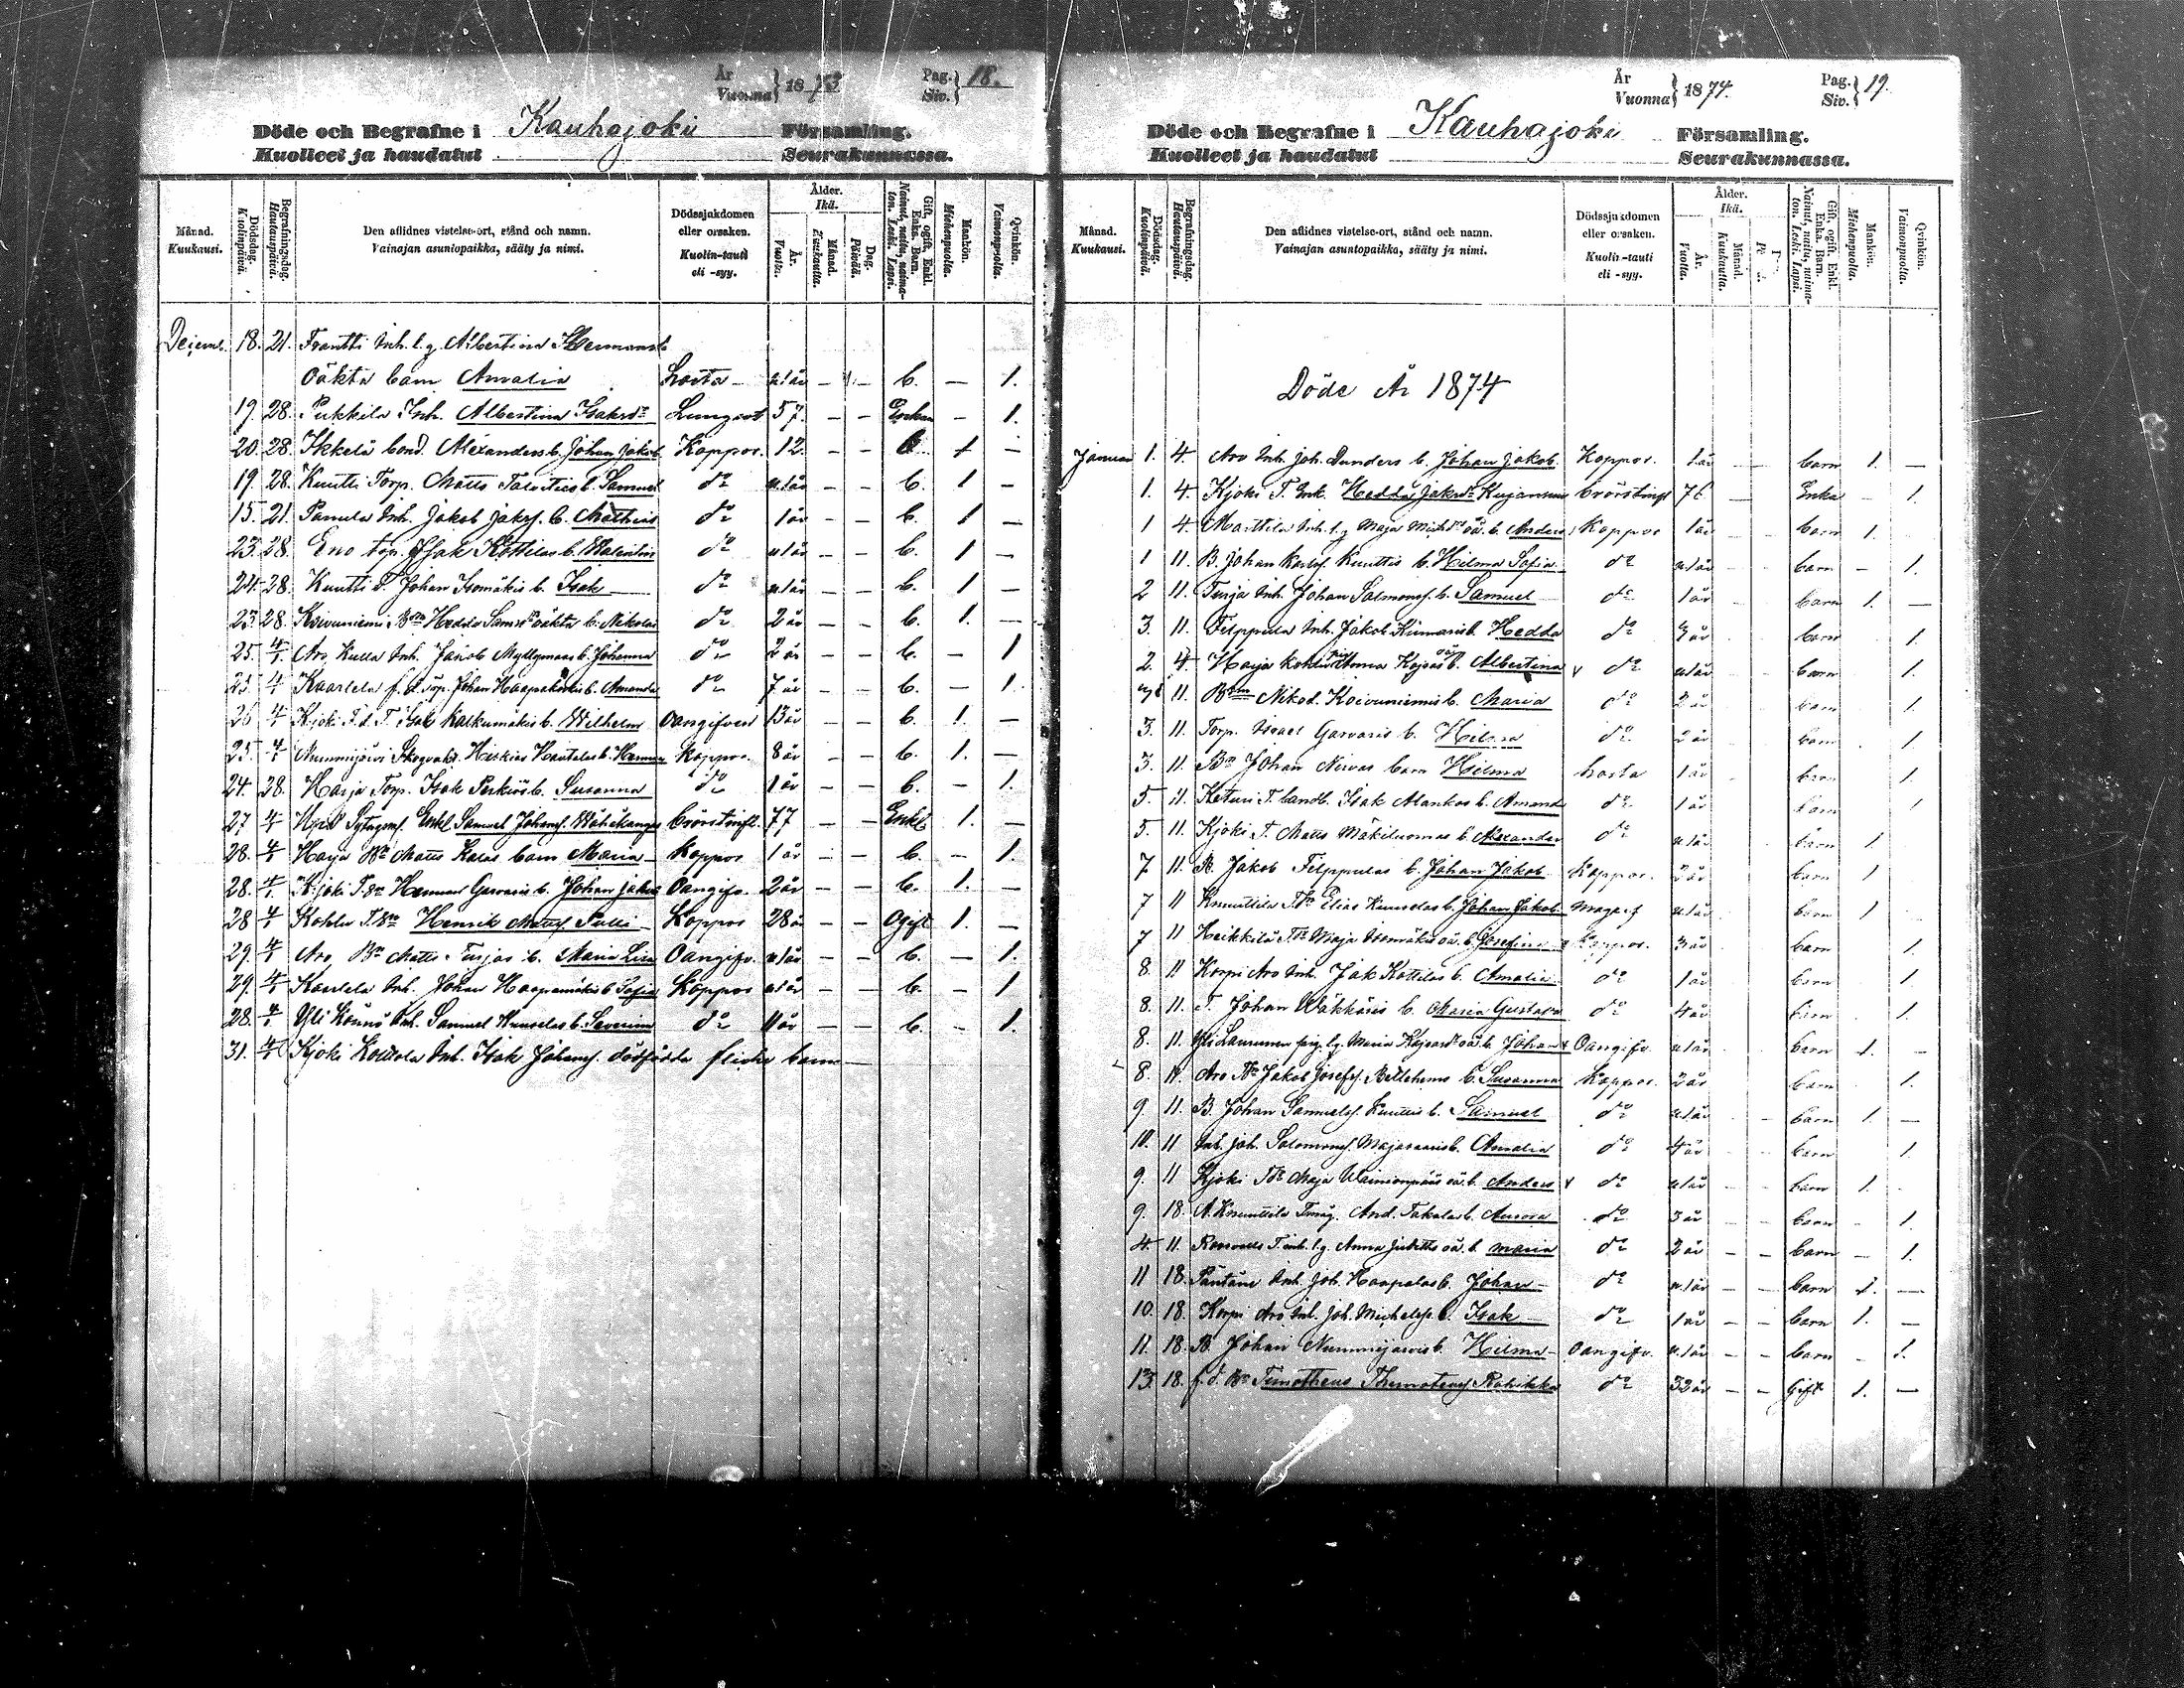 År Vuonna } 1873 Pag. Siv. } 18.
Döde och Begrafne i Kauhajoki Församling.
Kuolleet ja haudatut Seurakunnassa.
Månad. Kuukausi. Dödsdag. Kuolinpäivä. Begrafningsdag. Hautauspäivä. Den aflidnes vistelse-ort, stånd och namn. Vainajan asuntopaikka, sääty ja nimi. Dödssjukdomen eller orsaken. Kuolin-tauti eli -syy. Ålder. Ikä. År. Vuotta. Månad. Kuukautta. Dag. Päivää. Gift, ogift. Enkl. Enka. Barn. Nainut, naitu, naimaton. Leski. Lapsi. Mankön. Miehenpuolta. Qvinkön. Vaimonpuolta.
Decemb. 18. 21. Frantti Inh. l. g. Albertina Hermansd
oäkta barn Amalia hosta - u 1 år - - b. - 1.
19. 28. Pukkila Inh. Albertina Isaksdr Lungsot 57. - - Enka - 1.
20. 28. Ikkelä bond. Alexanders b. Johan Jakob Koppor. 12. - - b. 1 -
19. 28. Kuutti Torp. Matts Talvities b. Samuel do u 1 år - - b. 1 -
15. 21. Panula Inh. Jakob Jaksf. b. Mathias do 1 år - - b. 1 -
23. 28. Eno torp. Isak Kottilas b. Walentin do u 1 år - - b. 1 -
24. 28. Kuutti T. Johan Isomäkis b. Isak do u 1 år - - b. 1 -
23. 28. Koivuniemi Hedda Samsdr oäkta b. Nikolai do 2 år - - b. 1. -
25. 4/1. Aro Kulla Inh. Jakob Myllymaas b. Johanna do 2 år - - b. - 1
25. 4/1 Kaarlela f. d. Torp. Johan Haapakoskis b. Amanda do 7 år - - b. - 1.
26 4/1 Kjoki T. d. T. Isak Kalkumäkis b. Wilhelm Oangifven 13 år - - b. 1. -
25. 4/1 Nummijärvi Skogvakt. Hiskias Hautalas b. Herman Koppor. 8 år - - b. 1. -
24. 28. Harja Torp. Isak Perkiös b. Susanna do 1 år - - b. - 1.
27 4/1 Enkl Samuel Johansf. bröstinfl. 77 - - Enkl 1. -
28. 4/1 Harja Br Matts Kalas barn Maria Koppor 1 år - - b. - 1.
28. 4/1. Kjoki T. Herman Garvaris b. Johan Jakob Oangifv. 2 år - - b. 1. -
28 4/1 Henrik Mattsf. Pulli Koppor 28 år - - Ogift 1. -
29. 4/1 Aro, Br Matts Turjas b. Maria Lisa Oangifv. u 1 år - - b. - 1.
29. 4/1 Kaarlela Inh. Johan Haapamäkis b. Sofia Koppor u 1 år - - b. - 1
28. 4/1. Yli Könnö Inh. Samuel Kunselas b. Severina do 11 år - - b. - 1.
31. 4/1 Kjoki Inh. Isak Johansf. dödfödda flicko barn
År Vuonna } 1874. Pag. Siv. } 19.
Döde och Begrafne i Kauhajoki Församling.
Kuolleet ja haudatut Seurakunnassa.
Månad. Kuukausi. Dödsdag. Kuolinpäivä. Begrafningsdag. Hautauspäivä. Den aflidnes vistelse-ort, stånd och namn. Vainajan asuntopaikka, sääty ja nimi. Dödssjukdomen eller orsaken. Kuolin-tauti eli -syy. Ålder. Ikä. År. Vuotta. Månad. Kuukautta. Gift, ogift. Enkl. Enka. Barn. Nainut, naitu, naimaton. Leski. Lapsi. Mankön. Miehenpuolta. Qvinkön. Vaimonpuolta.
Döde År 1874
Januari 1. 4. Aro Inh. Joh. Dunders b. Johan Jakob. Koppor. 1 år barn 1. -
1. 4. Kjoki T. Enk. Hedda Jaksdr Kujansuu bröstinfl 76 Enka - 1.
1 4. Marttila Inh. l. g. Maja Michsdr oä. b. Anders Koppor 1 år barn 1.
1 11. B. Johan Karlsf. Knuttis b. Hilma Sofia do u 1 år barn - 1.
2 11. Turja Inh. Johan Salomonsf. b. Samuel do 1 år barn 1. -
3. 11. Filppula Inh. Jakob Kiimaris b. Hedda do 3 år barn 1
2. 4. Harja Anna Kajsas b. Albertina do u 1 år barn 1.
11. Nikod. Koivuniemis b. Maria do 2 år barn 1.
3. 11. Torp. Israel Garvaris b. Hilma do 2 år barn 1
3. 11. Br Johan Neivas barn Hilma hosta 1 år barn 1
5. 11. Keturi T. landb. Isak Alankos b. Amanda do 1 år barn 1
5. 11. Kjoki T. Matts Mäkiluomas b. Alexander do u 1 år barn 1
7 11. B. Jakob Filppulas b. Johan Jakob Koppor. 2 år barn 1
7 11 Knuuttila Elias Kunselas b. Johan Jakob Magref u 1 år barn 1
7 11 Heikkilä Maja Isomäkis oä. b. Josefina Koppor. 3 år barn 1
8. 11 Korpi Aro Inh. Isak Kottilas b. Amalia do 1 år barn 1
8. 11. T. Johan Wäkkäris b. Maria Gustava do 4 år barn 1.
8. 11. Yli Lammen l. g. Maria oä. b. Johan Oangifv. u 1 år barn 1. -
8. 11. Aro Jakob Josefsf. Betlehems b. Susanna Koppor. 2 år barn 1.
9. 11. B. Johan Samuelsf. Knuttis b. Samuel do u 1 år barn 1. -
10. 11 Inh. Joh. Salomonsf. Majasaaris b. Amalia do 4 år barn 1
9. 11 Kjoki Maja Wainionpääs oä. b. Anders do u 1 år barn 1.
9. 18. A. Knuuttila And. Takalas b. Aurora do 3 år barn - 1.
4. 11. T. inh. l. g. Anna oä. b. Maria do 2 år - - barn - 1.
11 18. Päntäne Inh. Joh. Haapalas b. Johan do u 1 år - - barn 1. -
10. 18. Korpi Aro Inh. Joh. Michelsf. b. Isak do 1 år - - barn 1. -
11. 18. B. Johan Nummijärvis b. Hilma Oangifv. u 1 år - - barn - 1.
13. 18. f. d. Br Timotheus Thimoteusf Rahikka do 32 år - - Gift 1. -